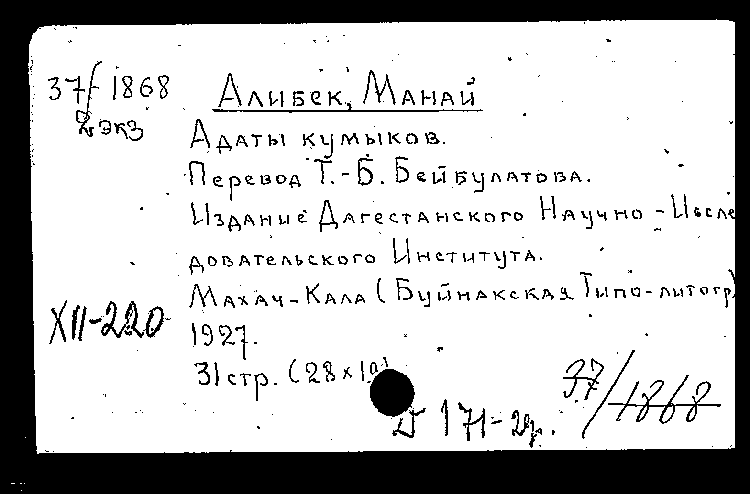 37/1868 Алибек, Манай
2 экз
Адаты кумыков.
Перевод Т.-Б. Бейбулатова.
Издание Дагестанского Научно-Иссле
довательского Института.
Махач-Кала (Буйнакская Типо-литогр)
XII-220
1927.
31 стр. (28 x
37/1868
171-2